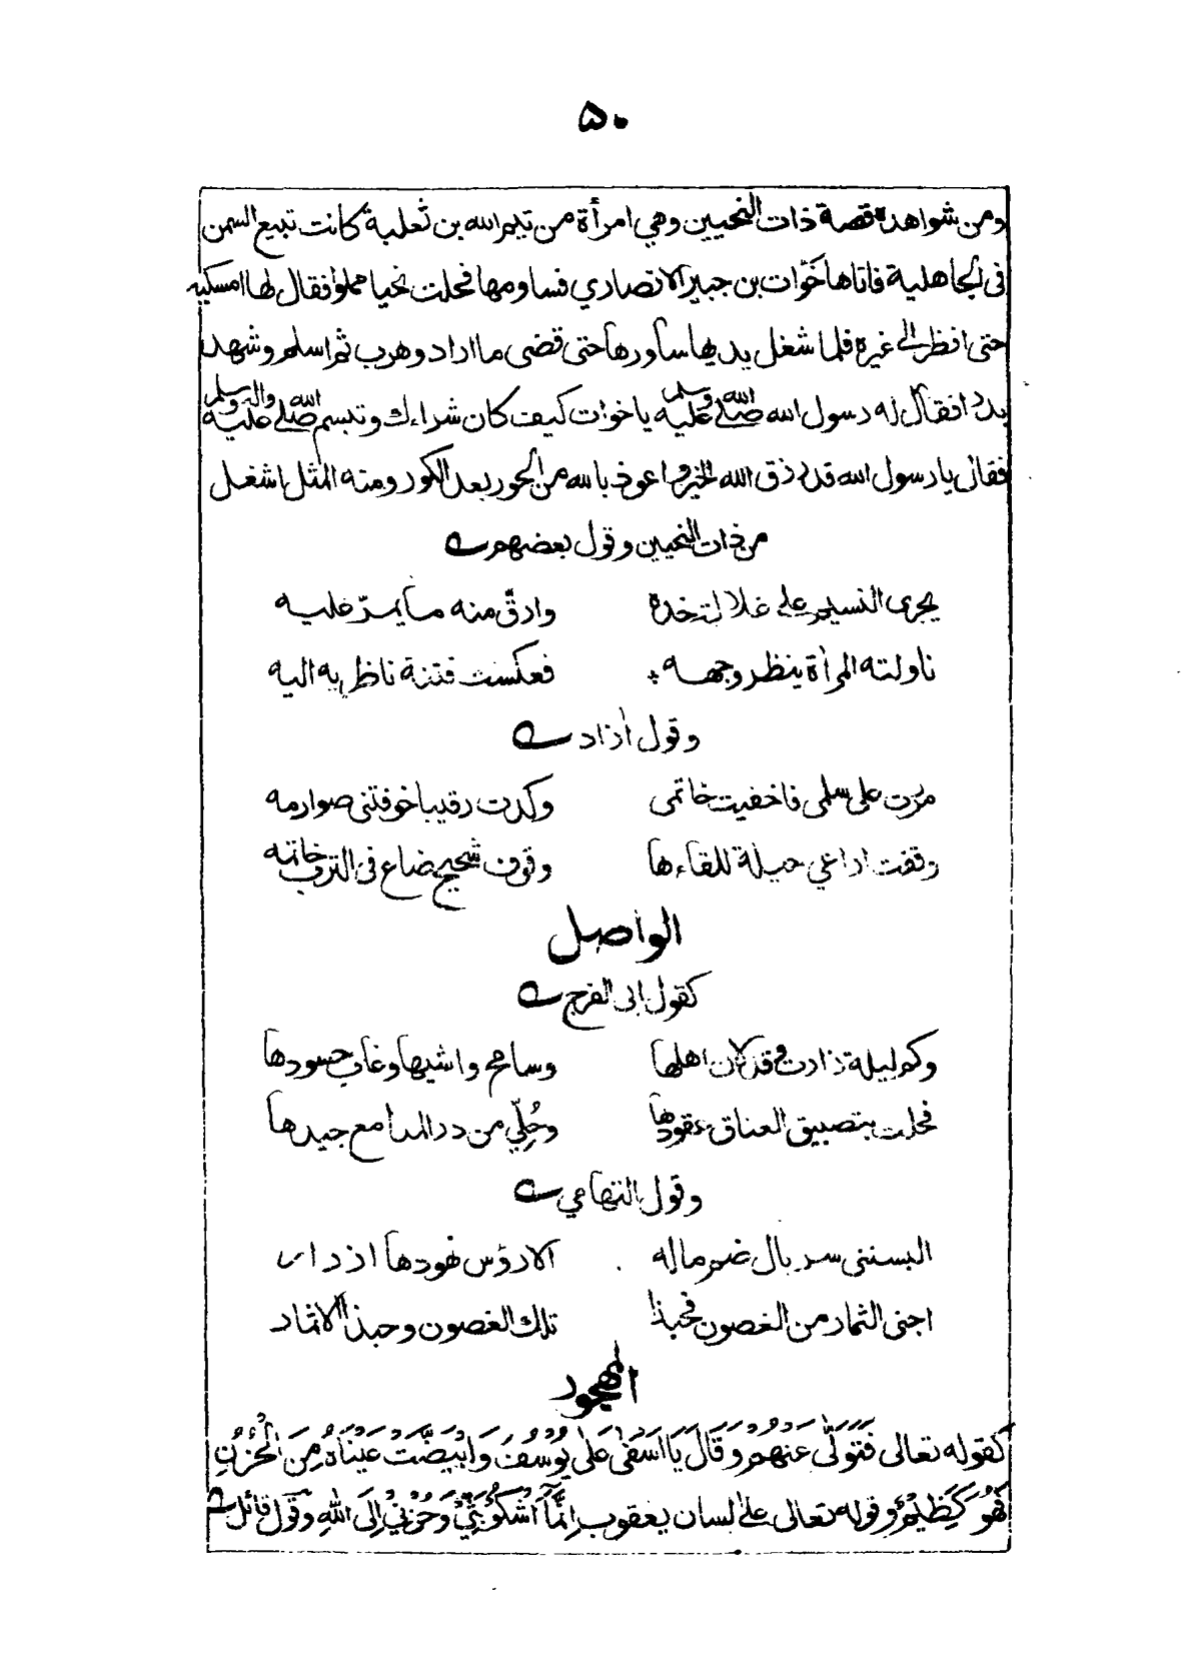 ۵۰
ومن شواهده قصة ذات النحيين وهي امرأة من تيم الله بن ثعلبة كانت تبيع السمن
فى الجاهلية فاتاها خوّات بن جبير الانصاري فساومها فحلت نحيا مملوا فقال لها امسكيه
حتى انظر الى غيره فلما شغل يديها ساورها حتى قضى ما اراد وهرب ثم اسلم وشهد
بدرا فقال له رسول الله صلى الله عليه وسلم يا خوات كيف كان شراءك وتبسم صلى الله عليه واله وسلم
فقال يا رسول الله قد رزق الله الخير واعوذ بالله من الحور بعد الكور ومنه المثل اشغل
من ذات النحيين وقول بعضهم
يجرى النسيم على غلالة خده وادقّ منه ما يمرّ عليه
ناولته المرأة ينظر وجهه فعكست فتنة ناظريه اليه
وقول أزاد
مررت على سلمى فاخفيت خاتمى وكدت رقيبا خوفتنى صوارمه
وقفت اداعي حيلة للقاءها وقوف شحيح ضاع فى الترب خاتمه
الواصل
كقول ابى الفرج
وكم ليلة زادت وقد لان اهلها وسامح واشيها وغاب حسودها
فحلت بتضييق العناق عقودها وحُلِّي من در المدامع جيدها
وقول التهامي
البستنى سربال ضم ماله الا رؤس نهودها ازرار
اجنى الثمار من الغصون فحبذا تلك الغصون وحبذا الاثمار
المهجور
كقوله تعالى فَتَوَلَّى عَنْهُمْ وَقَالَ يَا اَسَفٰى عَلٰى يُوْسُفَ وَابْيَضَّتْ عَيْنَاهُ مِنَ الْحُزْنِ
فَهُوَ كَظِيْمٌ وقوله تعالى على لسان يعقوب اِنَّمَا اَشْكُوْ بَثِّيْ وَحُزْنِيْ اِلَى اللهِ وقول قائل